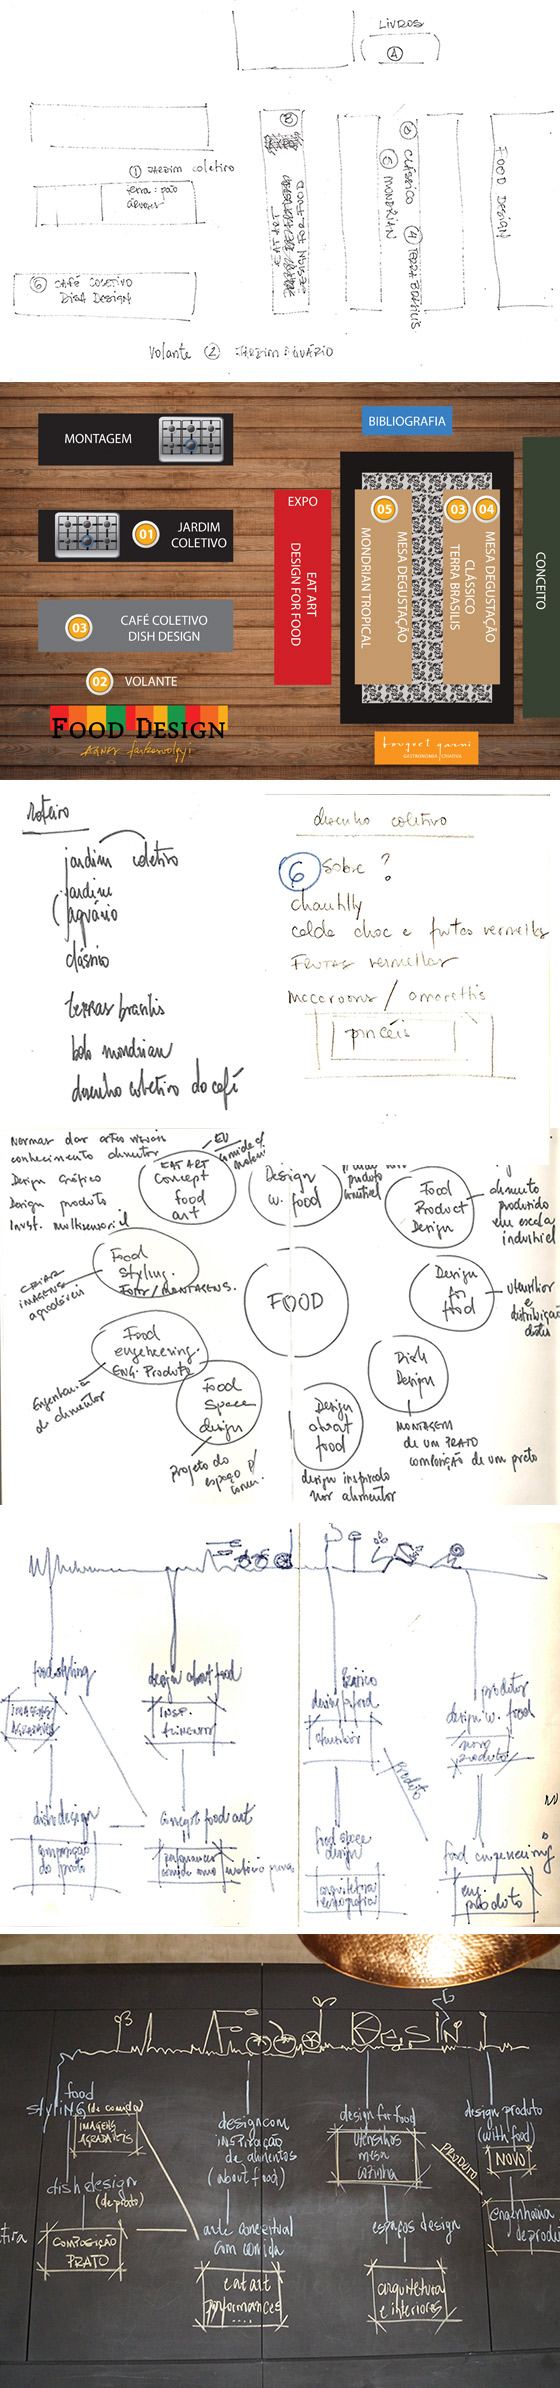 LIVROS
A
① JARDIM coletivo
terra: pão
árvores
⑥ CAFÉ COLETIVO
DISH DESIGN
B
EAT ART
DESIGN FOR FOOD
③ CLÁSSICO
④ TERRA BRASILIS
⑤ MONDRIAN
FOOD DESIGN
Volante ② JARDIM AQUÁRIO
BIBLIOGRAFIA
MONTAGEM
01 JARDIM
COLETIVO
03 CAFÉ COLETIVO
DISH DESIGN
02 VOLANTE
EXPO
EAT ART
DESIGN FOR FOOD
05
MESA DEGUSTAÇÃO
MONDRIAN TROPICAL
03 04
MESA DEGUSTAÇÃO
CLÁSSICO
TERRA BRASILIS
CONCEITO
FOOD DESIGN
bouquet garni
GASTRONOMIA CRIATIVA
roteiro
jardim coletivo
jardim
aquário
clássico
terras brasilis
bolo mondrian
desenho coletivo do café
desenho coletivo
6 Sobre ?
chantilly
calda choc e frutas vermelhas
FRUTAS vermelhas
macaroons / amarettis
pincéis
Normas das artes visuais
conhecimento alimentar
Design Gráfico
Design produto
Invest. multisensorial
EAT ART
Concept
food
art
EU
Design
w. food
produto
Food
Product
Design
alimento
produzido
em escala
industrial
Food
styling.
CRIAR
IMAGENS
agradáveis
FOOD
Design
for
food
utensílios
e
Food
engeneering.
ENG. Produto
Engenharia
de alimentos
Food
Space
design
projeto do
espaço p/
Design
about
food
design inspirado
nos alimentos
Dish
Design
MONTAGEM
DE UM PRATO
composição de um prato
food styling
IMAGENS
AGRADÁVEIS
design about food
INSP.
design food
produtos
design w. food
novo
produto
produto
dish design
composição
do prato
concept food art
performances
food space
design
arquitetura
food engeneering
eng.
produto
Food Design
food
styling (de comida)
IMAGENS
AGRADÁVEIS
dish design
(de prato)
COMPOSIÇÃO
PRATO
design com
inspiração
de alimentos
(about food)
arte conceitual
com comida
eat art
performances
....
design for food
utensílios
mesa
cozinha
espaços design
arquitetura
e interiores
PRODUTO
design produto
(with food)
NOVO
engenharia
de produ